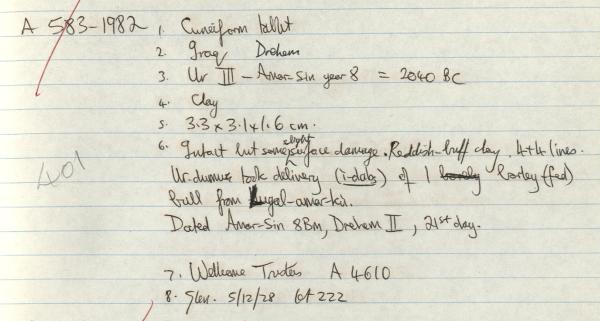 A 583-1982 1. Cuneiform tablet
2. Iraq Drehem
3. Ur III - Amar-Sin year 8 = 2040 BC
4. Clay
5. 3.3 x 3.1 x 1.6 cm.
6. Intact but some slight surface damage. Reddish-buff clay. 4+4 lines.
401
took delivery (i-dab5) of 1 barley (fed)
bull from Lugal-amar-kù.
Dated Amar-Sin 8Bm, Drehem II, 21st day.
7. Wellcome Trustees A 4610
8. 5/12/28 lot 222